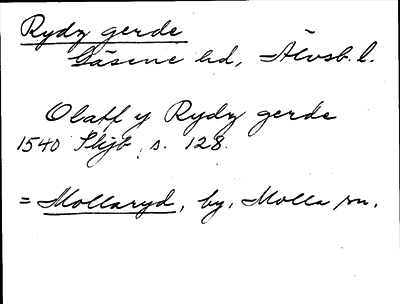 Rydz gerde
Gäsene hd, Älvsb. l.
Olaff y Rydz gerde
1540 Skjb s. 128.
= Mollaryd, by, Molla sn.